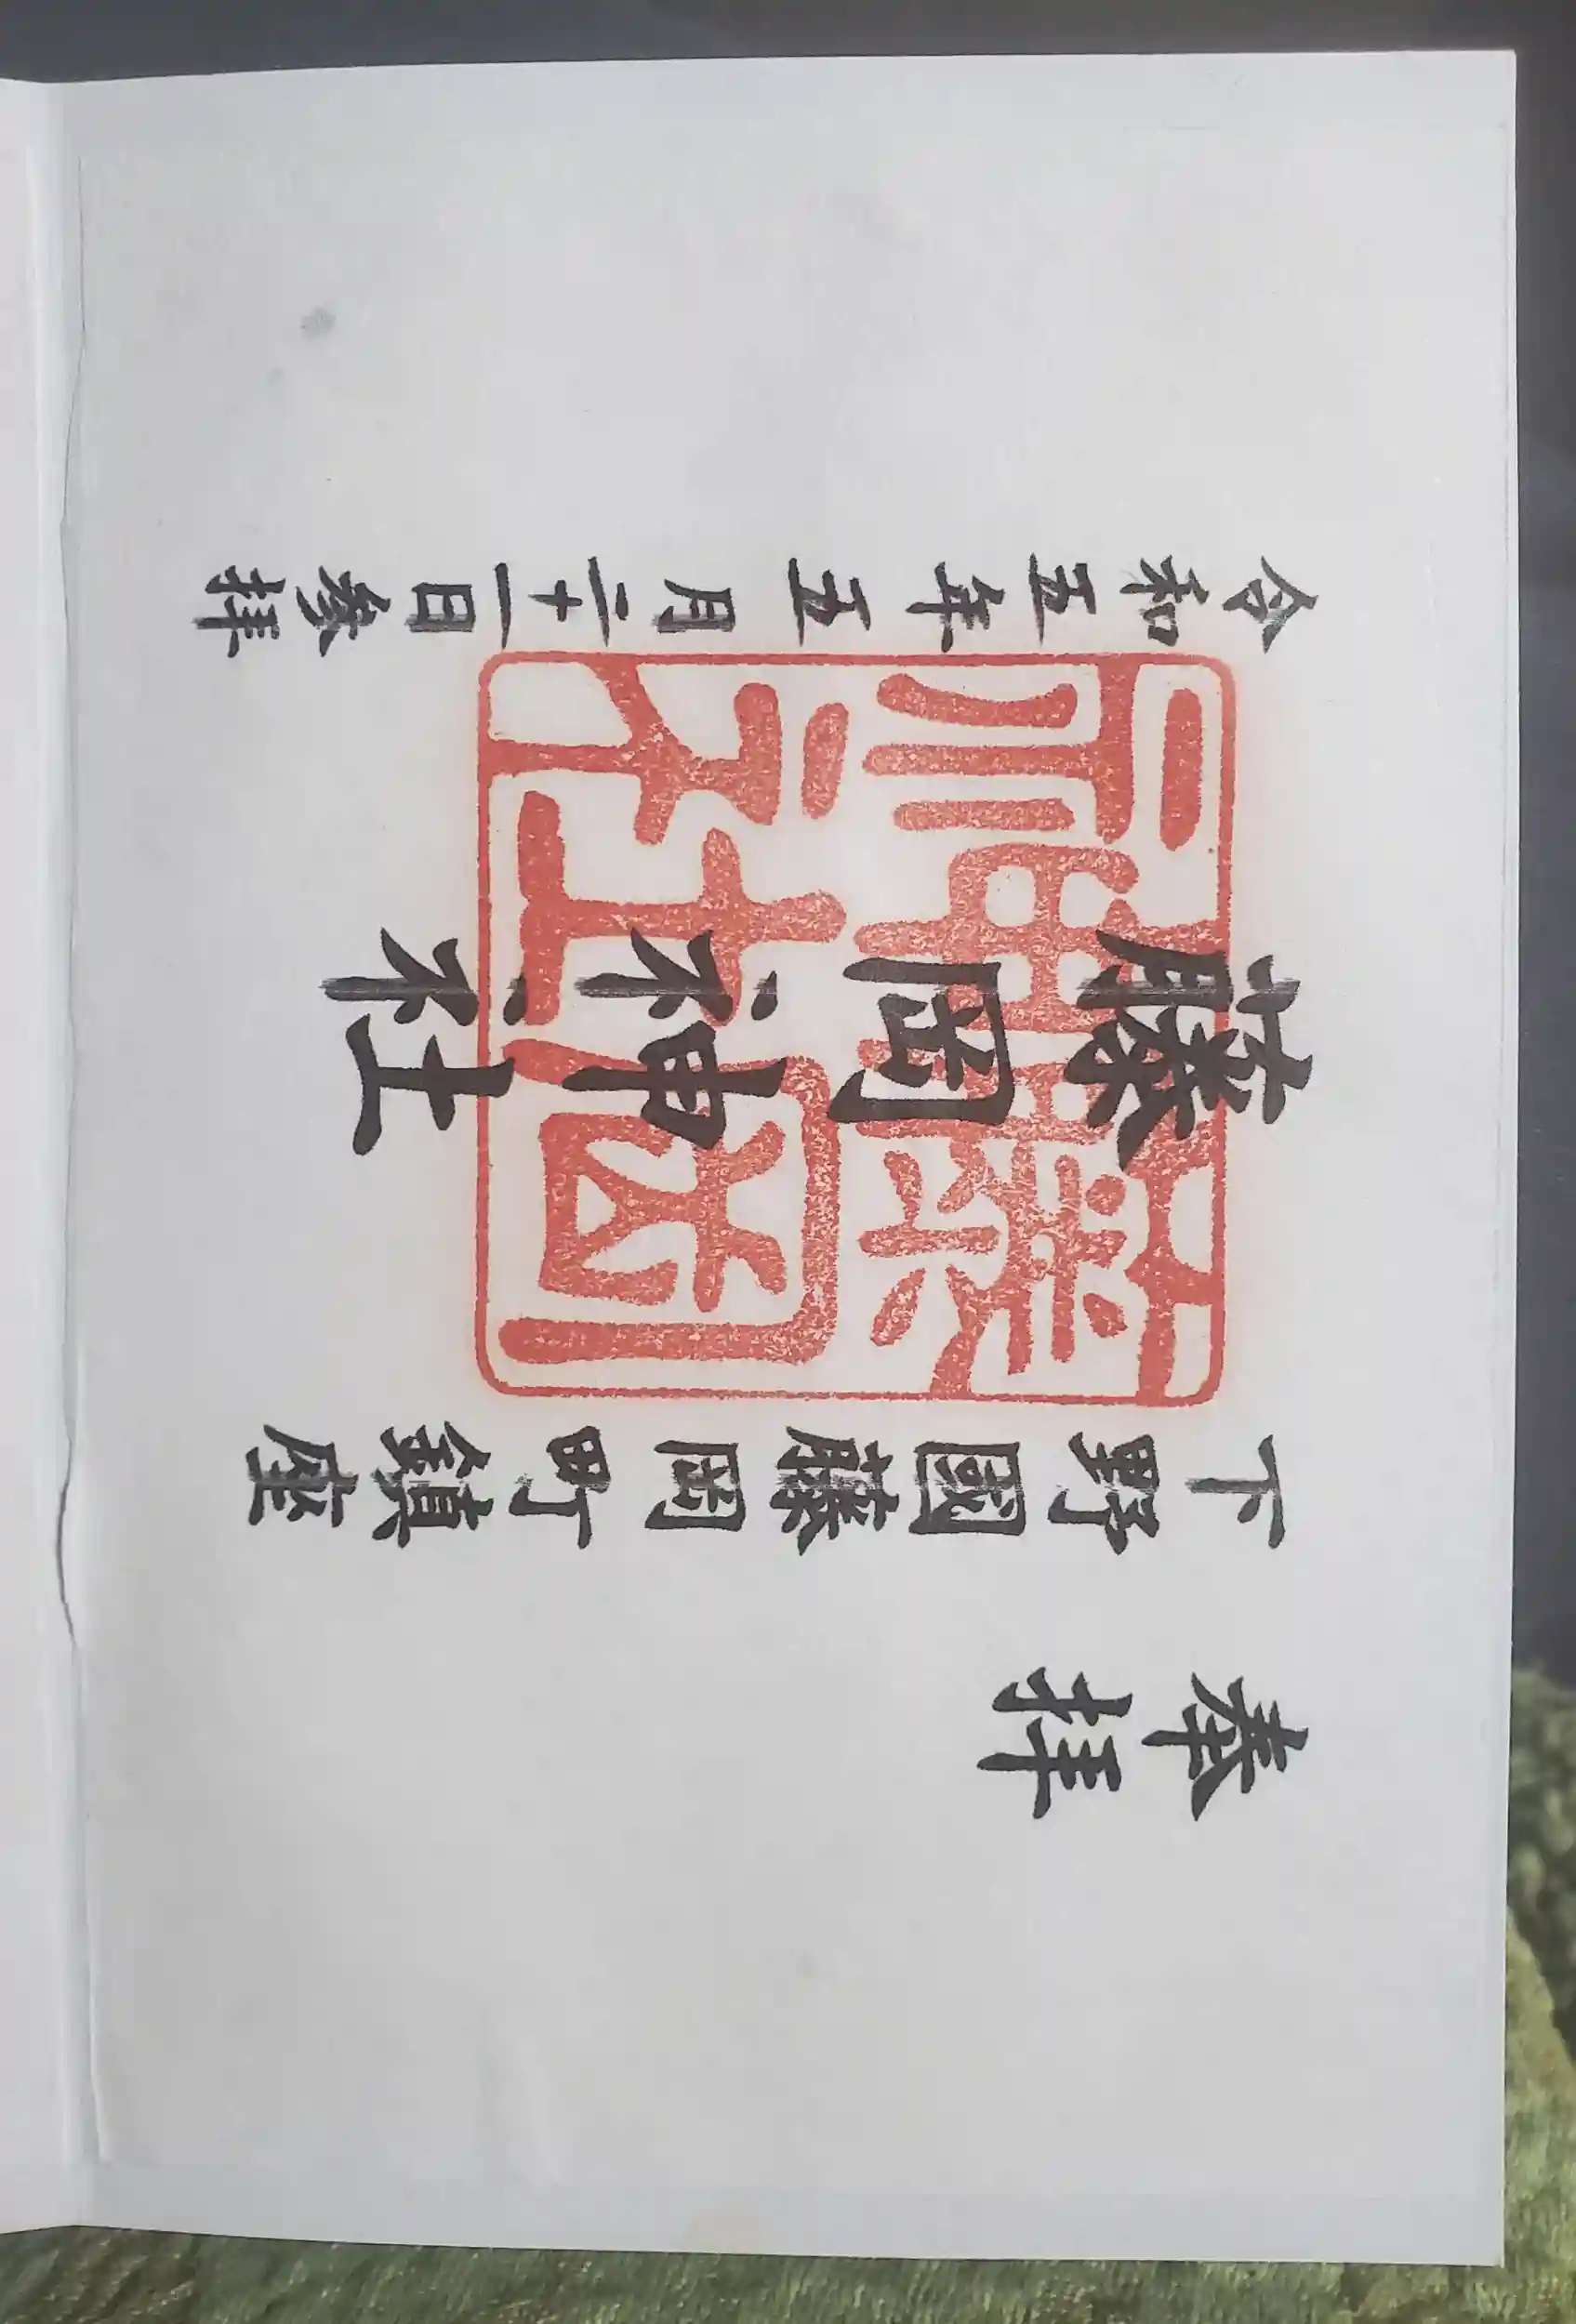 奉拝
下野國藤岡町鎮座
藤岡神社
令和五年五月二十一日参拝
藤岡神社